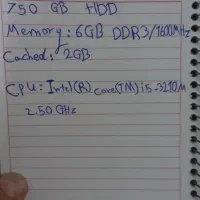 750 GB HDD
Memory: 6GB DDR3/1600MHz
Cached: 2GB
CPU: Intel(R) core(TM) i5-3210M
2.50 GHz